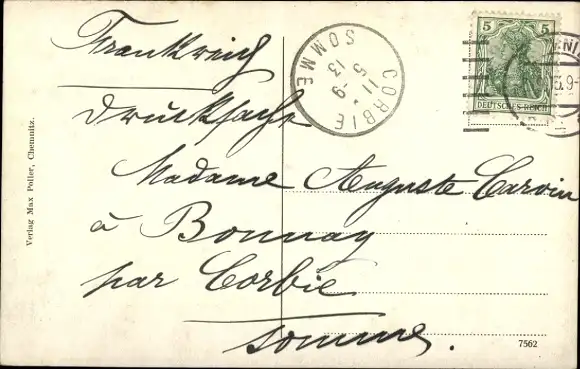 Frankreich
Drucksache
Madame Auguste Carvin
à Bonnay
par Corbie
Somme.
CORBIE
SOMME
11
5-9
13
5 5
DEUTSCHES REICH
5.9-
Verlag Max Poller, Chemnitz.
7562